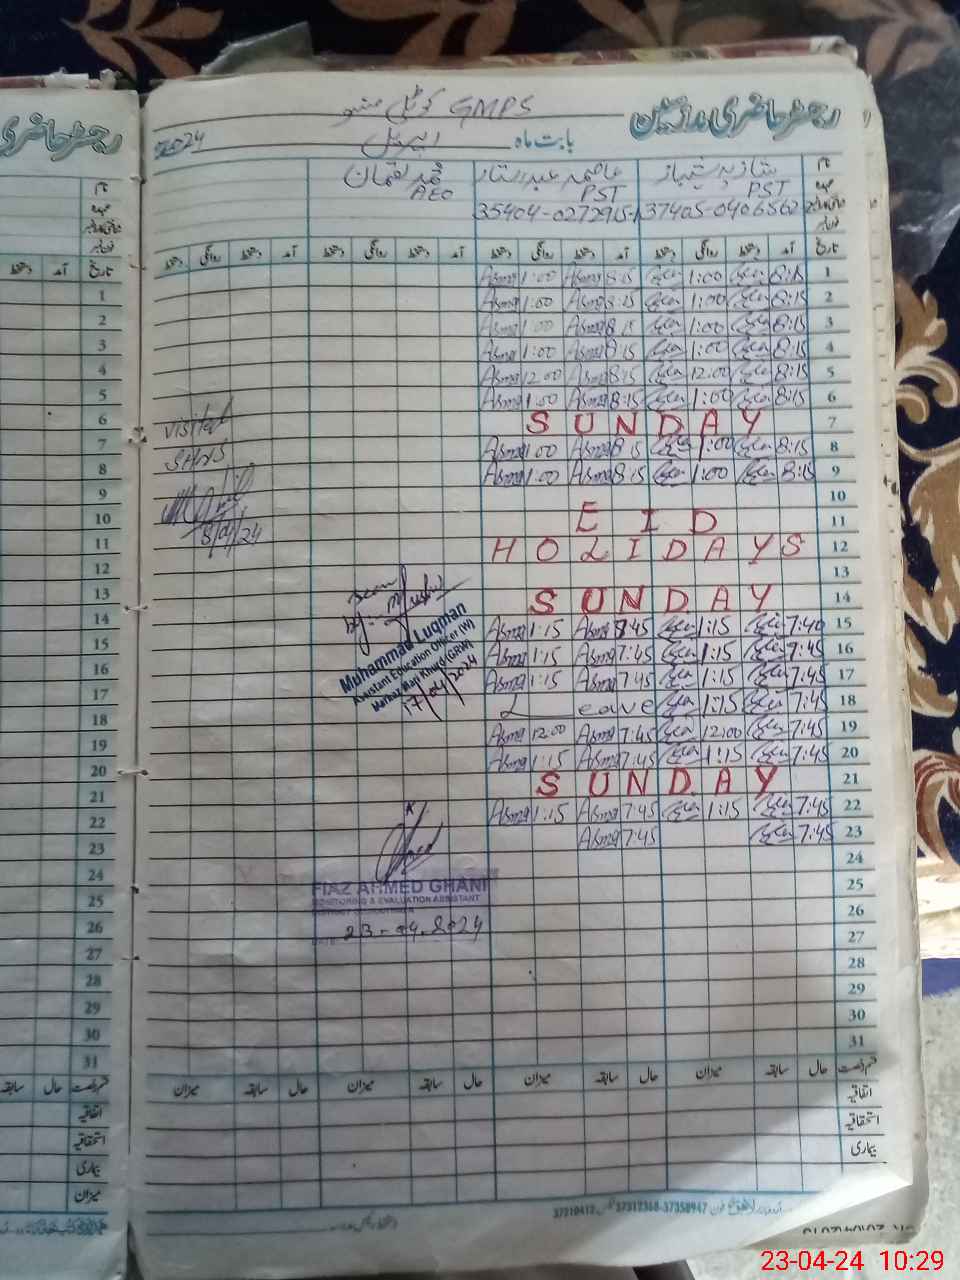 رجسٹر حاضری مدرسین
GMPS کوٹلی
بابت ماہ اپریل 2024
نام شازیہ شہباز عاصمہ عبدالستار محمد لقمان
عہدہ PST PST AEO
37405-0406562 35404-0272915-
تاریخ آمد دستخط روانگی دستخط آمد دستخط روانگی دستخط آمد دستخط روانگی دستخط آمد دستخط روانگی دستخط
1 8:15 1:00 Asma 8:15 Asma 1:00
2 8:15 1:00 Asma 8:15 Asma 1:00
3 8:15 1:00 Asma 8:15 Asma 1:00
4 8:15 1:00 Asma 8:15 Asma 1:00
5 8:15 12:00 Asma 8:15 Asma 12:00
6 8:15 1:00 Asma 8:15 Asma 1:00
7 SUNDAY
8 8:15 1:00 Asma 8:15 Asma 1:00
9 8:15 1:00 Asma 8:15 Asma 1:00
10
11 EID
12 HOLIDAYS
13
14 SUNDAY
15 7:40 1:15 Asma 7:45 Asma 1:15
16 7:45 1:15 Asma 7:45 Asma 1:15
17 7:45 1:15 Asma 7:45 Asma 1:15
18 7:45 1:15 Leave
19 7:45 12:00 Asma 7:45 Asma 12:00
20 7:45 1:15 Asma 7:45 Asma 1:15
21 SUNDAY
22 7:45 1:15 Asma 7:45 Asma 1:15
23 7:45 Asma 7:45
24
25
26
27
28
29
30
31
visited
8/04/24
Seen
by:
Muhammad Luqman
Assistant Education Officer (W)
Markaz Map Khurd (GRW)
17/04/2024
FIAZ AHMED GHANI
MONITORING & EVALUATION ASSISTANT
23-04-2024
قسم رخصت حال سابقہ میزان حال سابقہ میزان حال سابقہ میزان حال سابقہ میزان
اتفاقیہ
استحقاقیہ
بیماری
37310412 37312368-37358947
رجسٹر حاضری
نام
عہدہ
تاریخ آمد دستخط
1
2
3
4
5
6
7
8
9
10
11
12
13
14
15
16
17
18
19
20
21
22
23
24
25
26
27
28
29
30
31
قسم رخصت حال سابقہ
اتفاقیہ
استحقاقیہ
بیماری
میزان
23-04-24 10:29